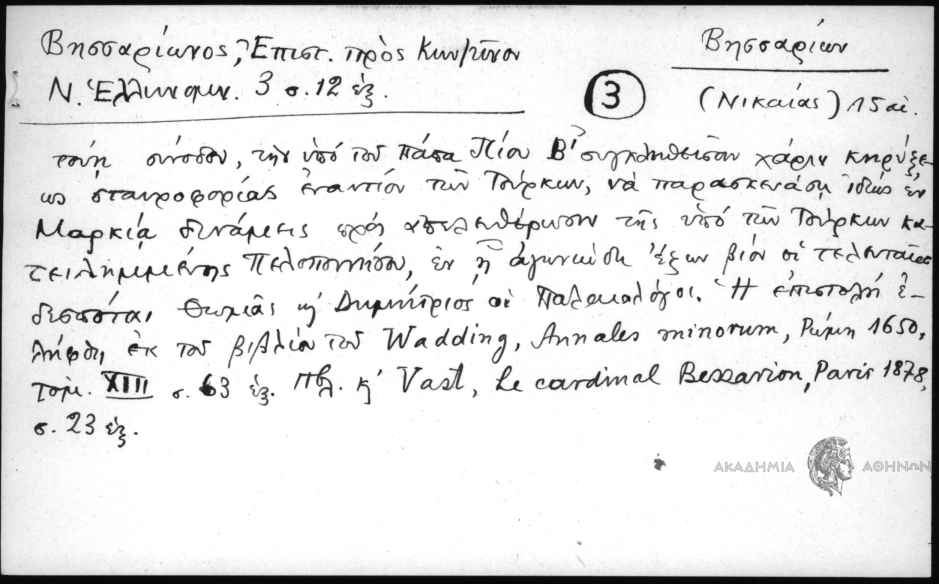 Βησσαρίωνος, Ἐπιστ. πρὸς Κων/τῖνον
Ν. Ἑλληνομν. 3 σ. 12 ἑξ.
3
Βησσαρίων
(Νικαίας) 15 αἰ.
σύνοδον, τὴν ὑπὸ τοῦ Πάπα Πίου Β' συγκληθεῖσαν χάριν κηρύξε-
ως σταυροφορίας ἐναντίον τῶν Τούρκων, νὰ παρασκευάσῃ ἰδίως ἐν
Μαρκίᾳ δυνάμεις πρὸς ἀπελευθέρωσιν τῆς ὑπὸ τῶν Τούρκων κα-
τειλημμένης Πελοποννήσου, ἐν ᾗ βίον οἱ τελευταῖοι
δεσπόται Θωμᾶς κ' Δημήτριος οἱ Παλαιολόγοι. Ἡ ἐπιστολὴ ἐ-
λήφθη ἐκ τοῦ βιβλίου τοῦ Wadding, Annales minorum, Ρώμη 1650,
τομ. XIII σ. 63 ἑξ. Πβλ. κ' Vast, Le cardinal Bessarion, Paris 1878,
σ. 23 ἑξ.
ΑΚΑΔΗΜΙΑ ΑΘΗΝΩΝ